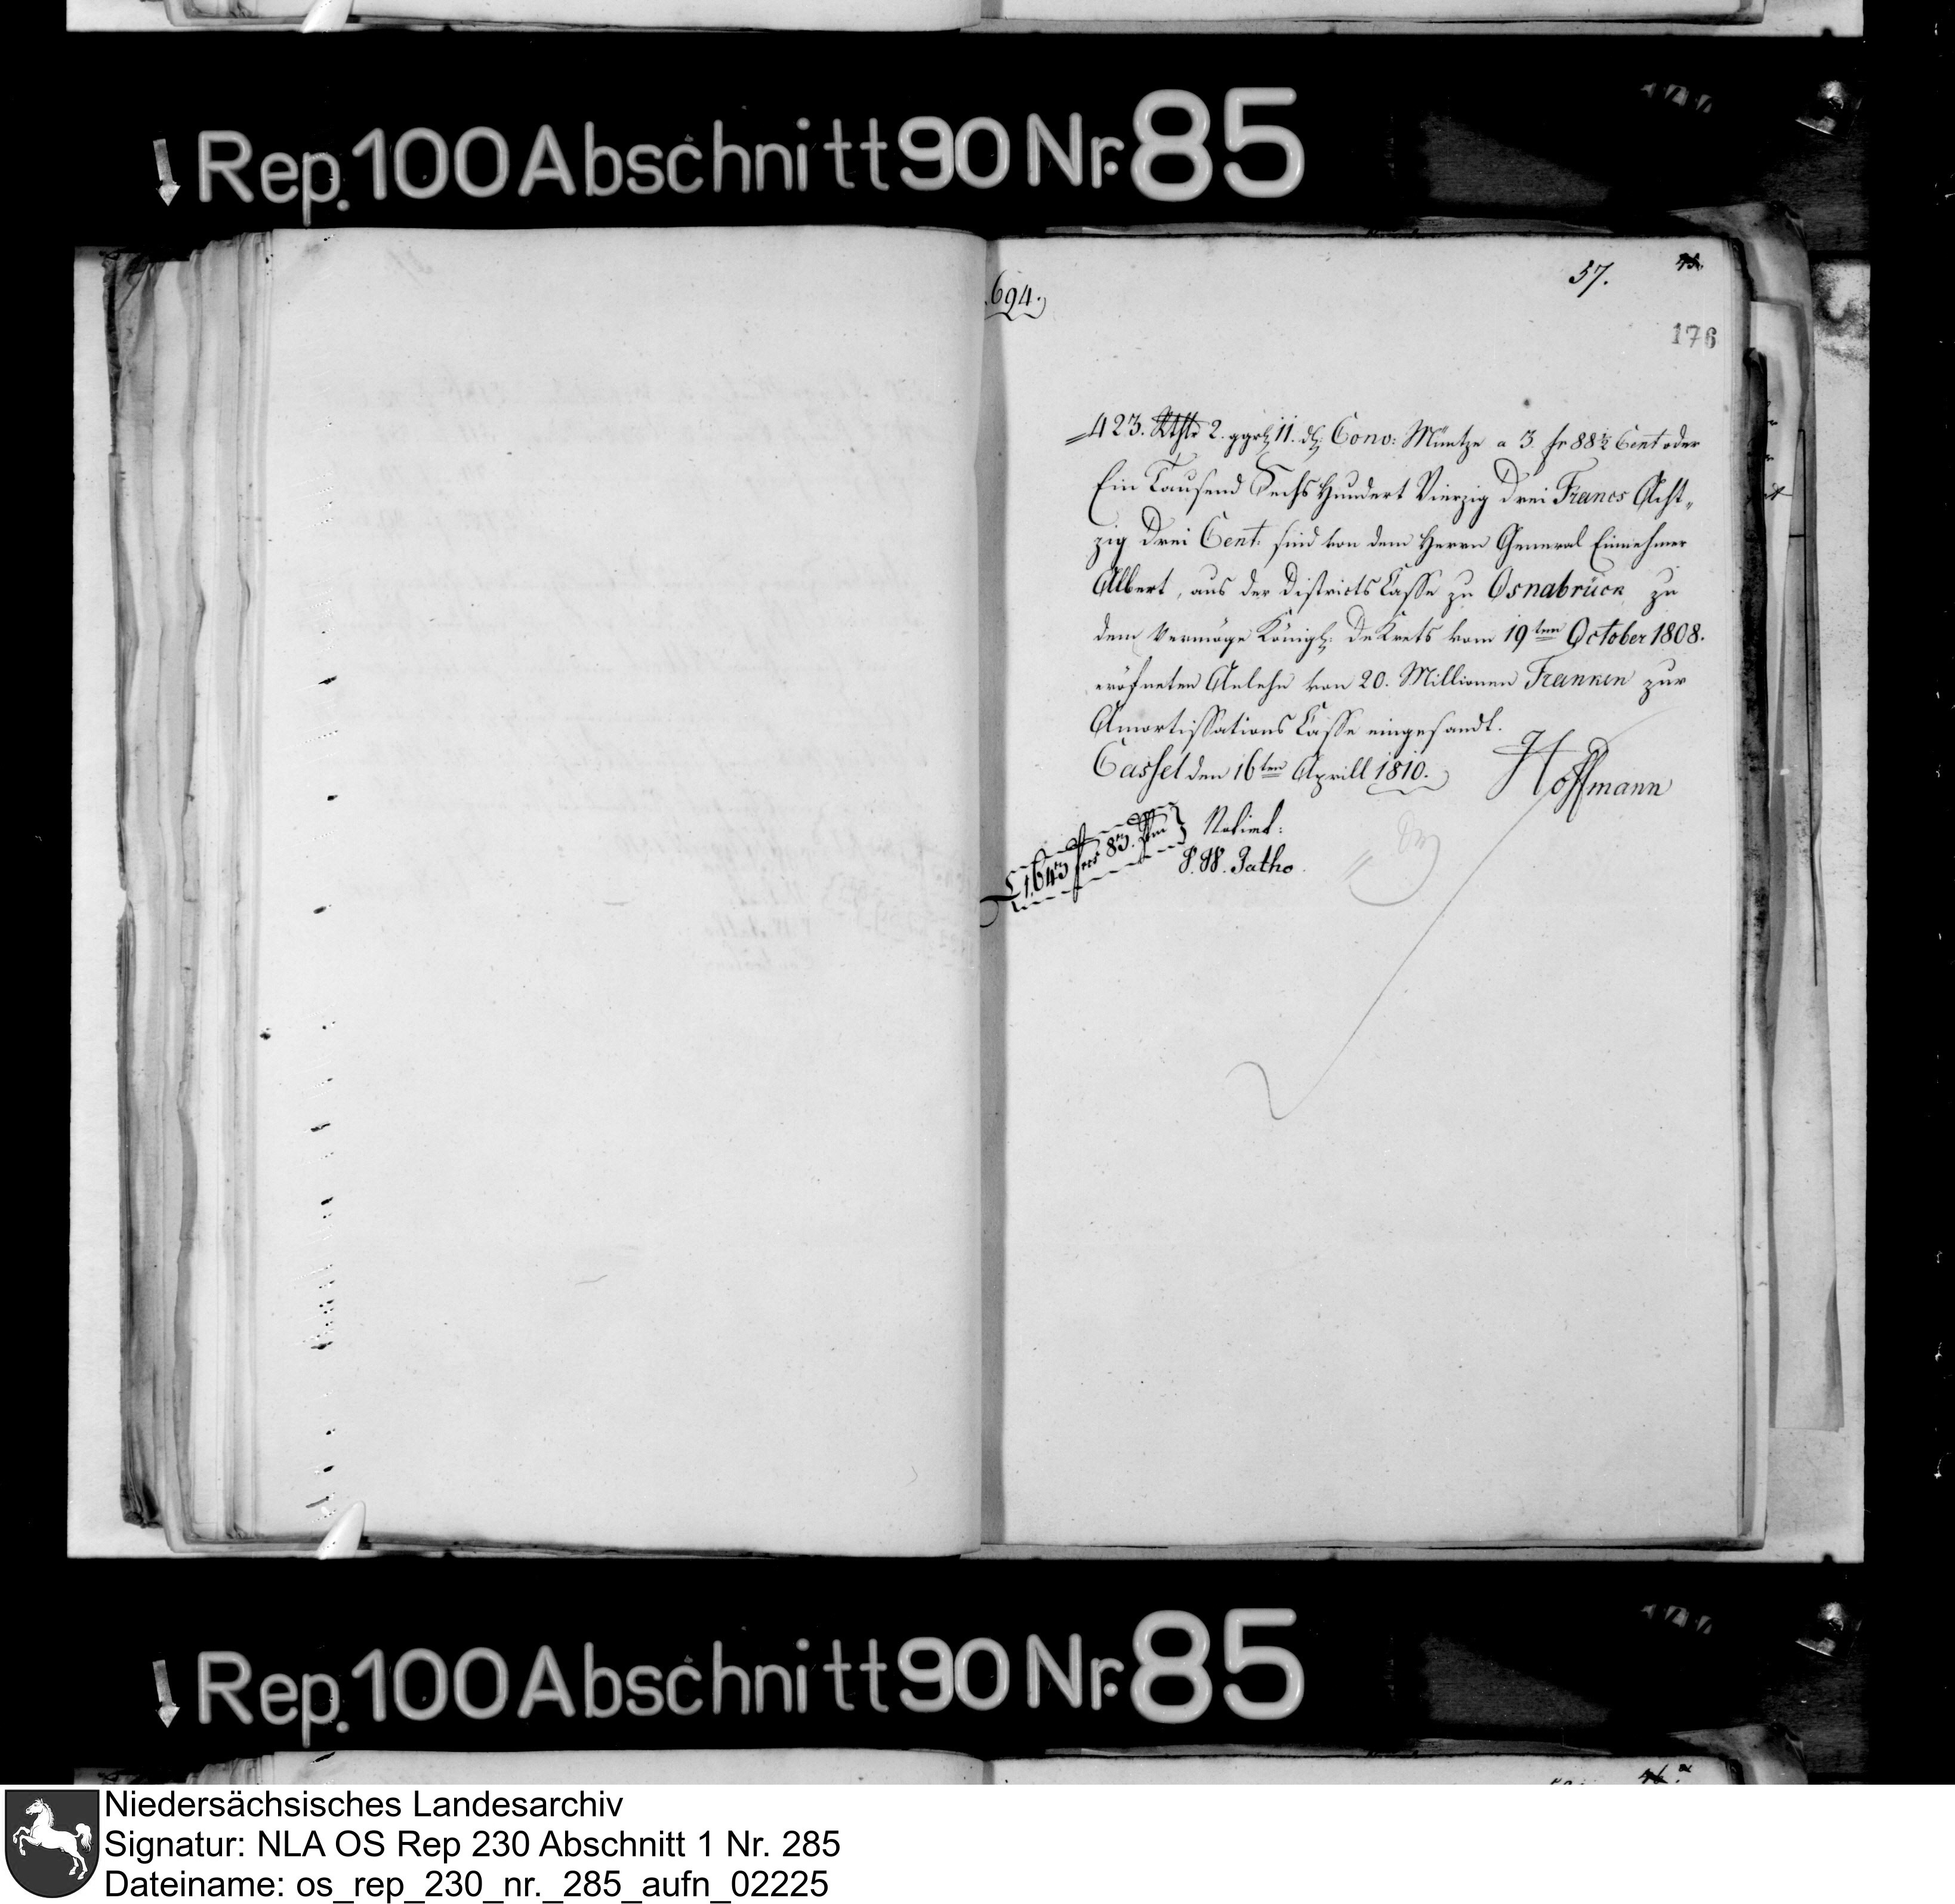 Rep. 100 Abschnitt 90 Nr. 85
694.
57.
176
423. Rthlr 2. ggrh 11. ₰ Conv: Müntze a 3. fr 88½ Cent oder
Ein Tausend Sechs Hundert Vierzig Drei Francs Acht„
zig Drei Cent: sind von dem Herrn General Einnehmer
Albert, aus der Districts Casse zu Osnabrück zu
dem Vermöge Königl: DeKrets vom 19ten October 1808.
eröfneten Anlehn von 20. Millionen Franken zur
Amortissations Casse eingesandt.
Cassel den 16ten Aprill 1810.
Hoffmann
1643 frcs 83. Ctm
Notirt:
P. W. Jatho.
Rep. 100 Abschnitt 90 Nr. 85
Niedersächsisches Landesarchiv
Signatur: NLA OS Rep 230 Abschnitt 1 Nr. 285
Dateiname: os_rep_230_nr._285_aufn_02225